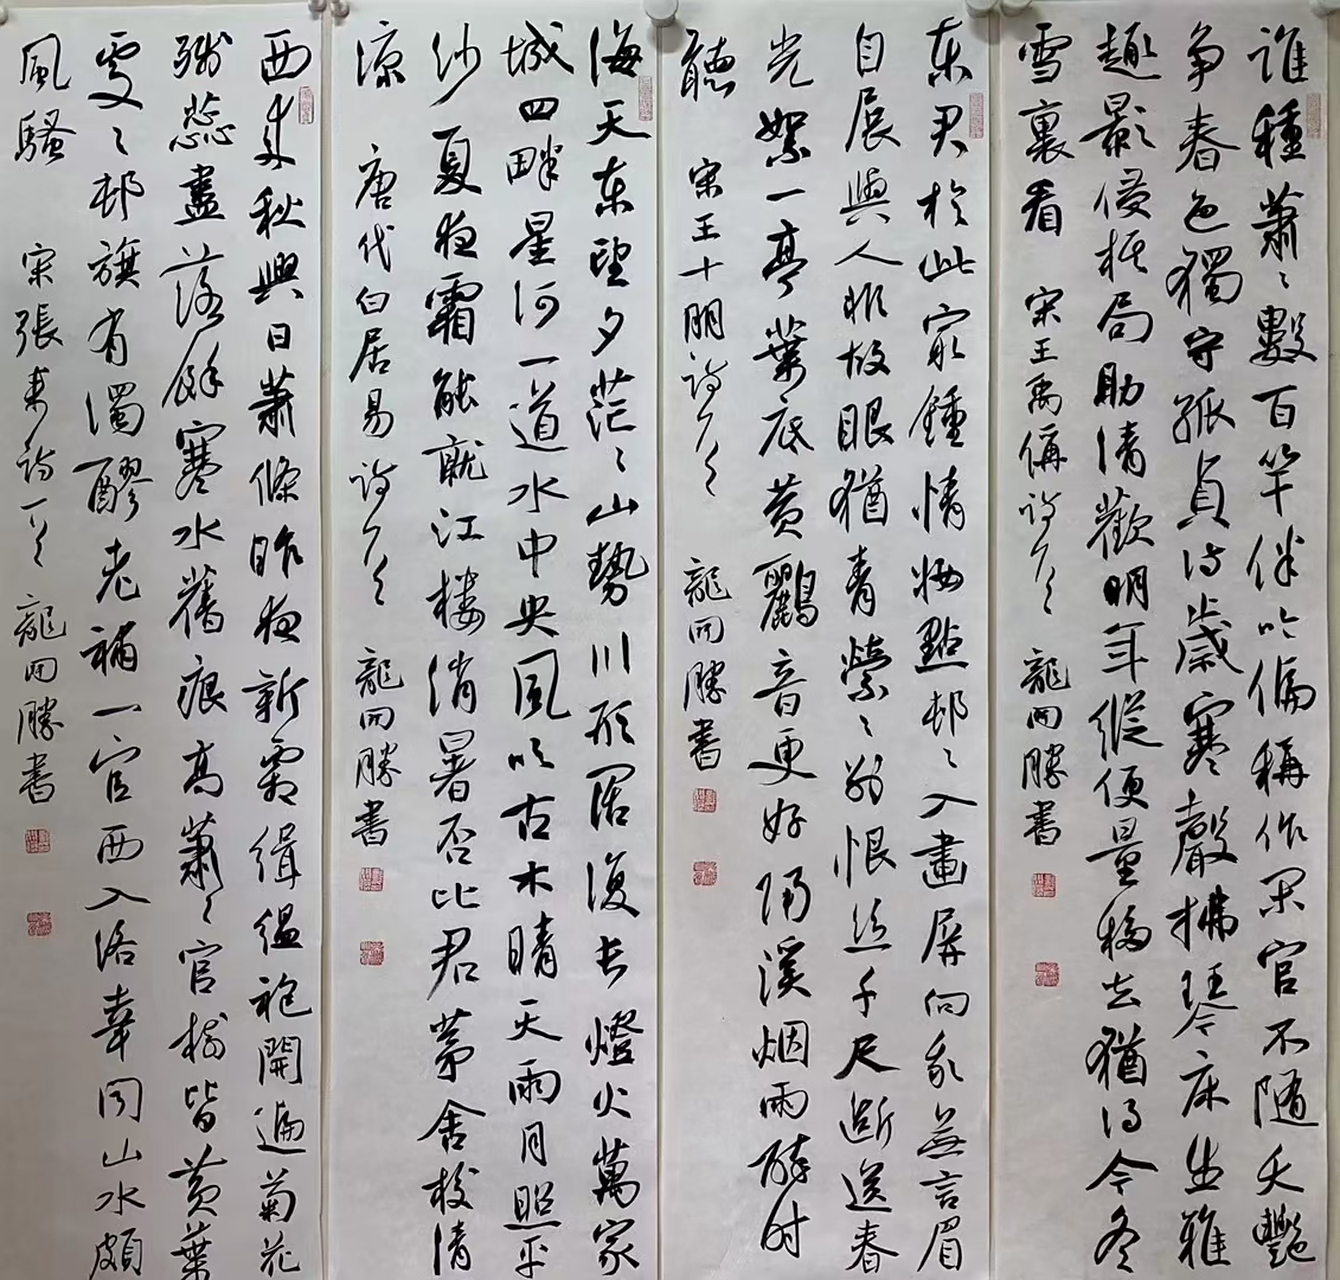 誰種蕭〻數百竿伴吟偏稱作閑官不隨夭艷
争春色獨守孤貞待歲寒聲拂琴床生雅
趣影侵棋局助清歡明年縱便量移去猶得今冬
雪裏看 宋王禹偁詩一首 龍開勝書
東君於此最鍾情妝點邨〻入畫屏向我無言眉
自展與人非故眼猶青縈〻别恨絲千尺斷送春
光絮一亭葉底黄鸝音更好隔溪烟雨醉时
聽 宋王十朋詩一首 龍開勝書
海天東望夕茫〻山勢川形闊復長燈火萬家
城四畔星河一道水中央風吹古木晴天雨月照平
沙夏夜霜能就江樓消暑否比君茅舍校清
凉 唐代白居易詩一首 龍開勝書
西來秋興日蕭條昨夜新霜緝緼袍開遍菊花
殘蕊盡落餘寒水舊痕高蕭〻官樹皆黄葉
處〻邨旗有濁醪老補一官西入洛幸聞山水頗
風騷 宋張耒詩一首 龍開勝書